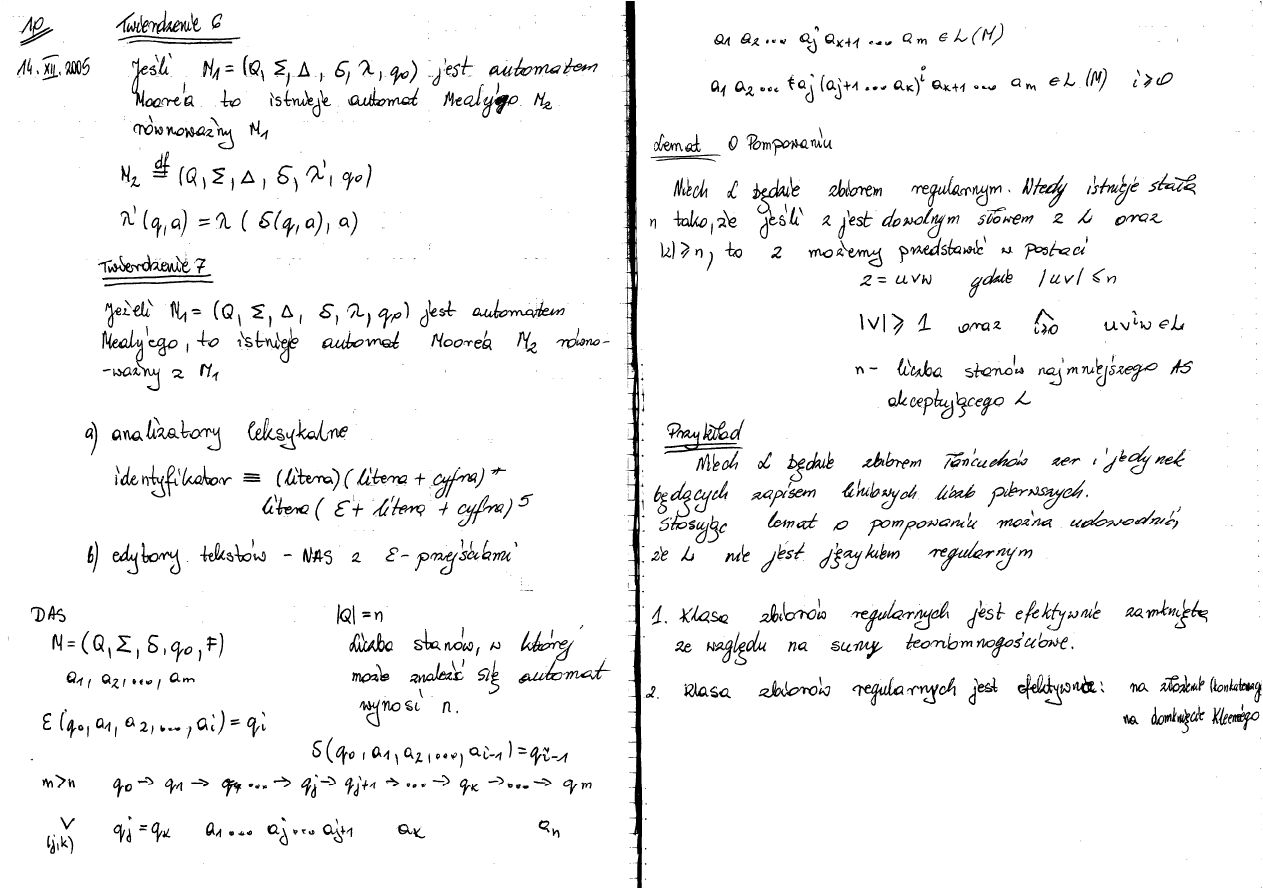 10
Twierdzenie 6
14.XII.2005
Jeśli M₁ = (Q, Σ, Δ, δ, λ, q₀) jest automatem
Moore'a to istnieje automat Mealy'ego M₂
równoważny M₁
M₂ ≝ (Q, Σ, Δ, δ, λ', q₀)
λ'(q,a) = λ ( δ(q,a), a)
Twierdzenie 7
Jeżeli M₁ = (Q, Σ, Δ, δ, λ, q₀) jest automatem
Mealy'ego, to istnieje automat Moore'a M₂ równo-
-ważny z M₁
a) analizatory leksykalne
identyfikator ≡ (litera)(litera + cyfra)*
litera ( ε + litera + cyfra)⁵
b) edytory tekstów - NAS z ε - przejściami
DAS
M = (Q, Σ, δ, q₀, F)
a₁, a₂, ..., am
ε(q₀, a₁, a₂, ..., ai) = qi
|Q| = n
Liczba stanów, w której
może znaleźć się automat
wynosi n.
δ(q₀, a₁, a₂, ..., ai-1) = qi-1
m>n q₀ → q₁ → ... → qj → qj+1 → ... → qk → ... → qm
V (j,k) qj = qk a₁ ... aj ... aj+1 ak an
a₁ a₂ ... aj ak+1 ... am ∈ L(M)
a₁ a₂ ... aj (aj+1 ... ak)ⁱ ak+1 ... am ∈ L(M) i ≥ 0
Lemat O Pompowaniu
Niech L będzie zbiorem regularnym. Wtedy istnieje stała
n taka, że jeśli z jest dowolnym słowem z L oraz
|z| ≥ n, to z możemy przedstawić w postaci
z = uvw gdzie |uv| ≤ n
|v| ≥ 1 oraz ⋀ i≥0 uvⁱw ∈ L
n - liczba stanów najmniejszego AS
akceptującego L
Przykład
Niech L będzie zbiorem łańcuchów zer i jedynek
będących zapisem binarnych liczb pierwszych.
Stosując lemat o pompowaniu można udowodnić,
że L nie jest językiem regularnym
1. Klasa zbiorów regularnych jest efektywnie zamknięta
ze względu na sumy teoriomnogościowe.
2. Klasa zbiorów regularnych jest efektywnie: na złożenie (konkatenacj
na domknięcie Kleene'go